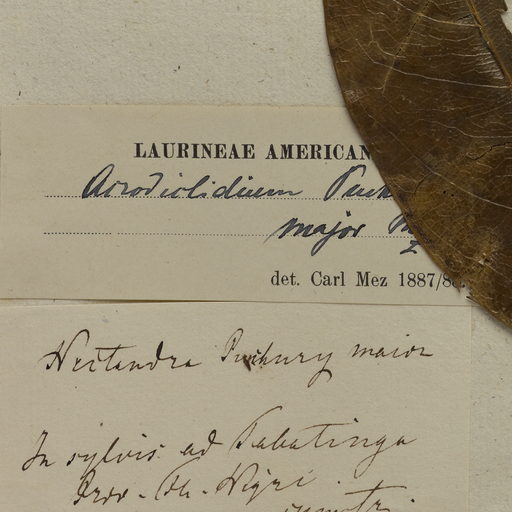 LAURINEAE AMERICAN
Acrodiclidium Puch
major M
det. Carl Mez 1887/8
Nectandra Puchury maior
In sylvis ad Tabatinga
Prov. Fl. Nigri.